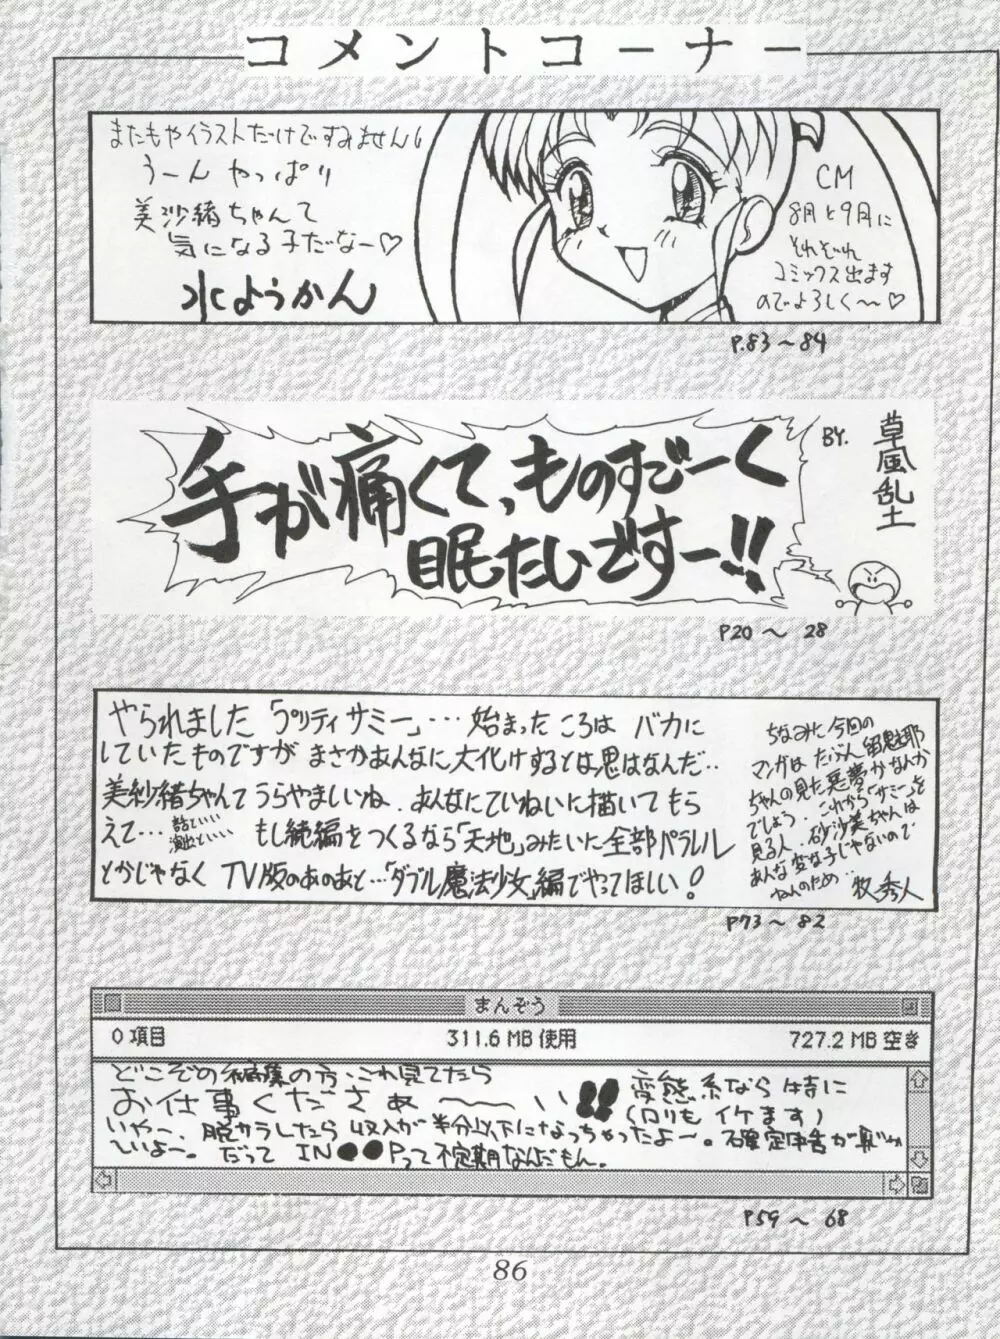 コメントコーナー
またもやイラストだけですみません
うーん やっぱり
美沙緒ちゃんて
気になる子だなー♡
水ようかん
CM
8月と9月に
それぞれ
コミックス出ます
のでよろしく〜♡
P.83〜84
手が痛くて、ものすごーく
眠たいですー!!
BY.
草風乱土
P20〜28
やられました「プリティサミー」… 始まったころは バカに
していたものですが まさかあんなに大化けするとは思はなんだ‥
美紗緒ちゃんてうらやましいね. あんなにていねいに描いてもら
えて…
話といい
演出といい
もし続編をつくるなら「天地」みたいに全部パラレル
とかじゃなく TV版のあのあと…「ダブル魔法少女」編でやってほしい!
ちなみに今回の
マンガは たぶん留魅耶
ちゃんの見た悪夢かなんか
でしょう. これから「サミー」を
見る人. 砂沙美ちゃんは
あんな変な子じゃないので
ねんのため‥
牧秀人
P73〜82
まんぞう
0 項目 311.6 MB 使用 727.2 MB 空き
どこぞの編集の方、これ見てたら
お仕事くださぁ〜〜い!!
変態系なら 特に
(ロリもイケます)
いやー、脱サラしたら収入が半分以下になっちゃったよー。確定申告が
いよー。だって IN●●Pって不定期なんだもん。
P59〜68
86